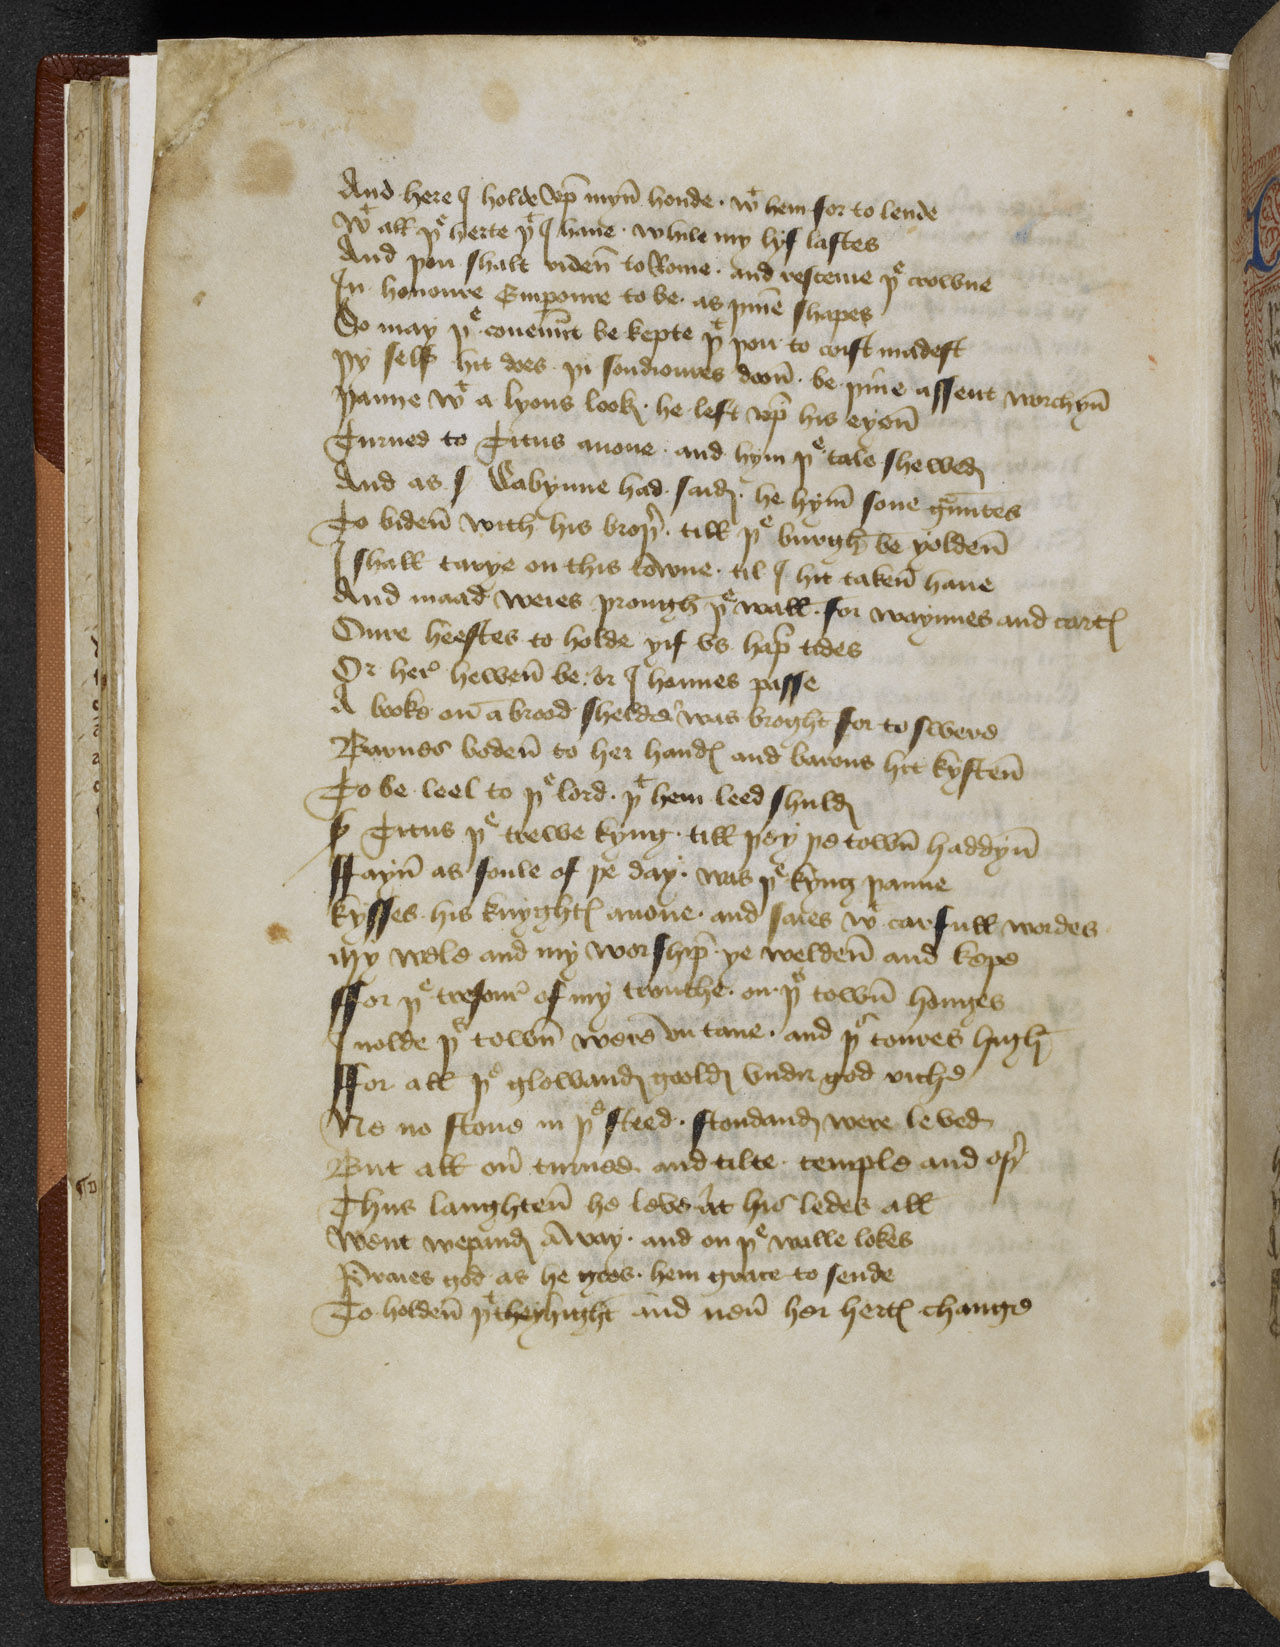 And here I holde vp myn̄ honde · wt hem for to lende
Wt all þe herte þt I haue · while my lyf lastes
And þou shalt riden̄ to Rome · and resceiue þe crowne
In honoure Emp̱oure to be · as þine shapes
So may þe couen̄nt be kepte þt þou to crist madest
Þy self hit does · þi soudioures doon̄ · be þine assent worchyn̄
Þanne wt a lyons look · he left vp his eyen̄
Turned to Titus anone · and hym þe tale shewed
And as s Sabynne had said · he hym̄ sone gr̄untes
To biden̄ with his broþr · till þe burgh be yolden̄
I shall tarye on this towne · til I hit taken̄ haue
And maad weies þrough þe wall · for waynnes and cartes
Oure heestes to holde yif vs hap̄ tides
Or her hewen̄ be · or I hennes passe
A booke on a brood shelde was broght for to swere
Barnes boden̄ to her handes and barons hit kysten̄
To be leel to þe lord · þt hem leed shuld
s Titus þe trewe kyng · till þey þe town̄ haddyn̄
ffayn̄ as foule of þe day · was þe kyng þanne
kysses his knyghtes anone · and saies wt carfull wordes
My wele and my worship · ye welden̄ and kepe
ffor þe tresour of my trouthe · on þis town̄ honges
I nolde þis town̄ were vn tane · and þe toures high
ffor all þe glowand goold vndr god riche
Ne no stone in þe steed · stondand were leved
But all ou̅ turned and tilte · temple and oþr
Thus laughten̄ he leve at his ledes all
Went wepand away · and on þe walle lokes
Praies god as he goos · hem grace to sende
To holden̄ þt they hight and neu̅ her hertes change